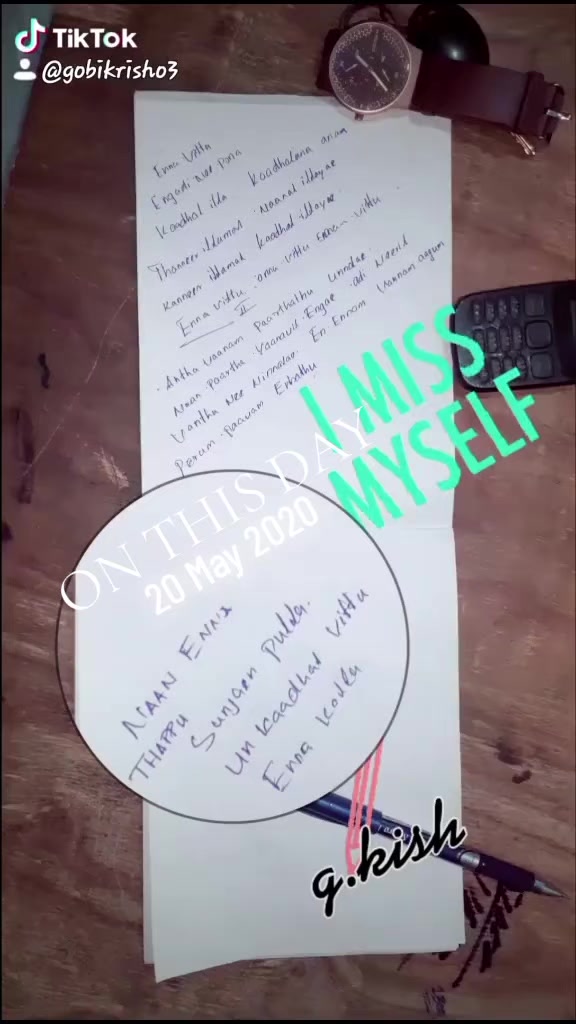 TikTok
@gobikrisho3
Enna Vittu
Engadi nee Pona
Kaadhal illa Kaadhalana anian
Thanneer illamal Naanal illayae
Kanneer illamal Kaadhal illayae.
Enna vittu enna vittu Ennna vittu.
II
Antha vaanam Paarthathu unndae.
Naan paartha Vaanavil Engae adi Neeril
Vantha Nee Ninnalae En Ennam Vannam agum
Perum paavam Enbathu
I MISS
MYSELF
ON THIS DAY
20 May 2020
NAAN ENNA
THAPPU Sunjaen Pulda.
Un Kaadhal Vittu
Enna Kolla
g.kish